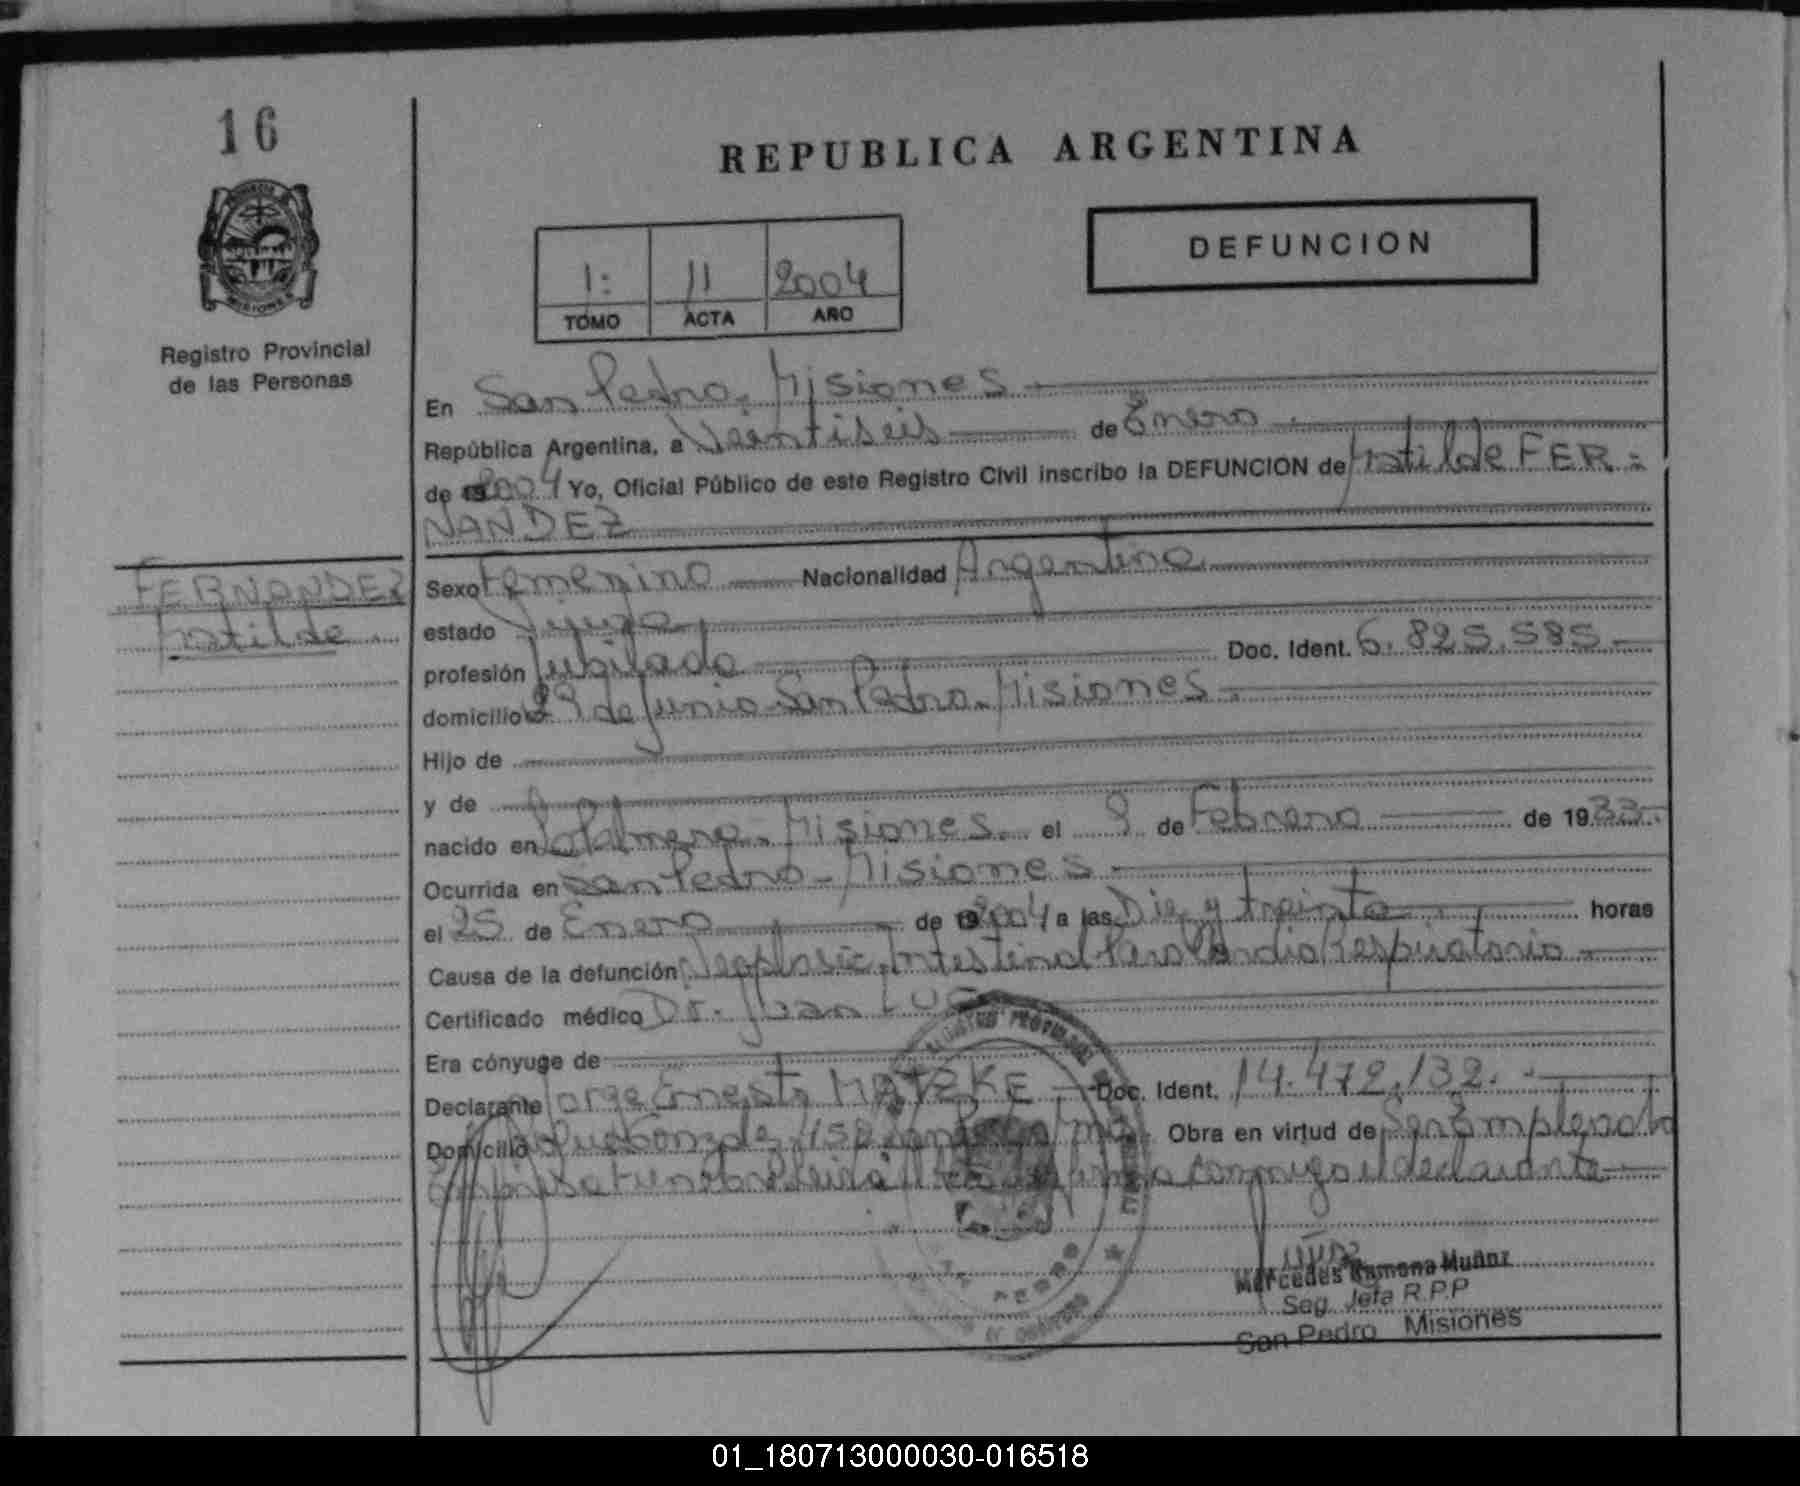 16
REPUBLICA ARGENTINA
DEFUNCION
1: 11 2004
TOMO ACTA AÑO
PROVINCIA
MISIONES
Registro Provincial
de las Personas
En San Pedro, Misiones
República Argentina, a Veintiseis de Enero
de 2004 Yo, Oficial Público de este Registro Civil inscribo la DEFUNCION de Matilde FER-
NANDEZ
FERNANDEZ
Matilde
Sexo Femenino Nacionalidad Argentina
estado Viuda
profesión Jubilada Doc. Ident. 6.825.585.-
domicilio 29 de Junio San Pedro. Misiones
Hijo de
y de
nacido en Palmera. Misiones. el 9 de Febrero de 1933.-
Ocurrida en San Pedro - Misiones
el 25 de Enero de 2004 a las Diez y treinta horas
Causa de la defunción Neoplasia Intestinal Paro Cardio Respiratorio
Certificado médico Dr. Juan
Era cónyuge de
Declarante Jorge Ernesto MATZKE Doc. Ident. 14.472.132.
Domicilio Obra en virtud de Ser Empleado
Empresa firma conmigo el declarante
Mercedes Ramona Muñoz
Seg. Jefa R.P.P
San Pedro Misiones
01_180713000030-016518